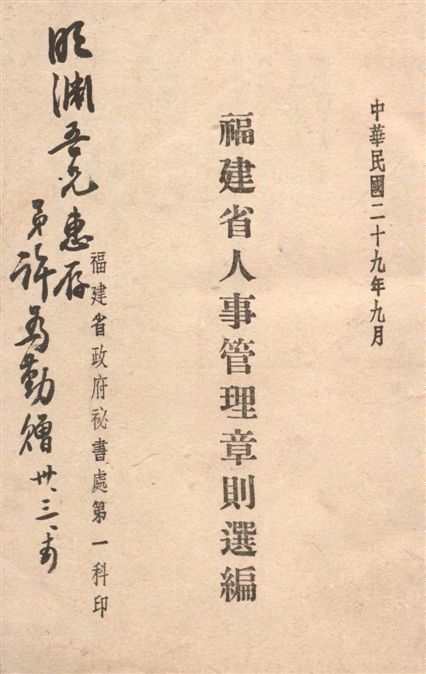 中華民國二十九年九月
福建省人事管理章則選編
福建省政府祕書處第一科印
淵吾兄惠存
弟許為勤贈 卅、三、